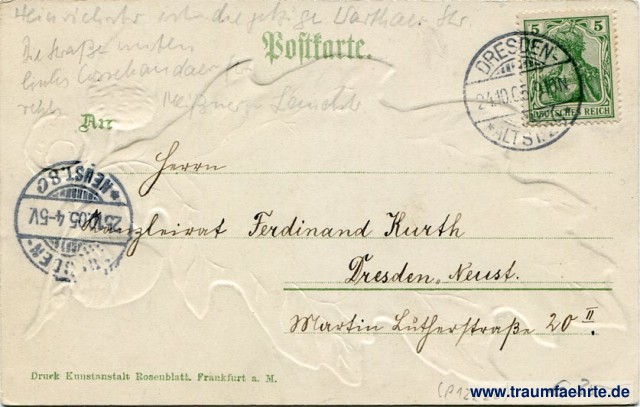 Heinrichstr ist die jetzige Warthaer Str.
Die Straße unten
links Cossebaudaer Str
rechts Meißner Landstr.
Postkarte.
5 5
DEUTSCHES REICH
DRESDEN-
24.10.05
ALTST.
An
Herrn
NEUST. 8c
25.10.05. 4-5V.
DRESDEN
Kanzleirat Ferdinand Kurth
Dresden, Neust.
Martin Lutherstraße 20 II.
Druck Kunstanstalt Rosenblatt. Frankfurt a. M.
www.traumfaehrte.de